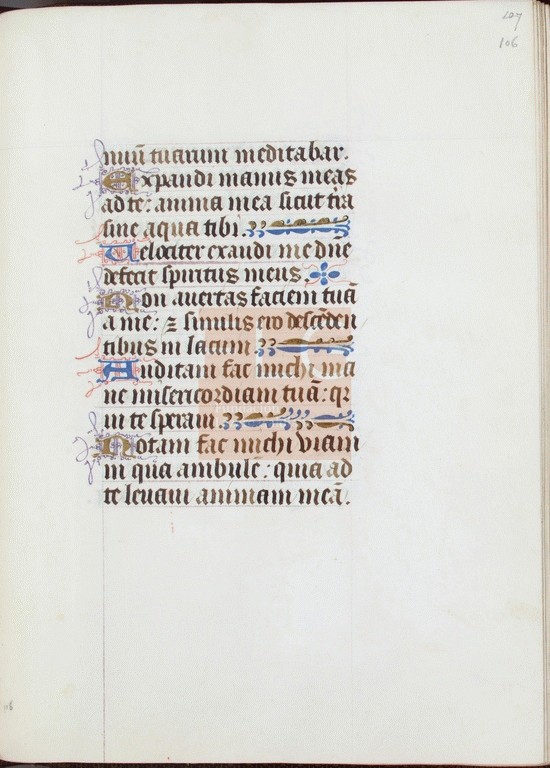 107
106
nuū tuarum meditabar.
Expandi manus meas
ad te: anima mea sicut t̄ra
sine aqua tibi.
Uelociter exaudi me dn̄e
defecit spiritus meus.
Non auertas faciem tuā
a me: ⁊ similis ero descēden
tibus in lacum
Auditam fac michi ma
ne misericordiam tuā: qr
in te speraui.
Notam fac michi viam
in qua ambulē: quia ad
te leuaui animam meā.